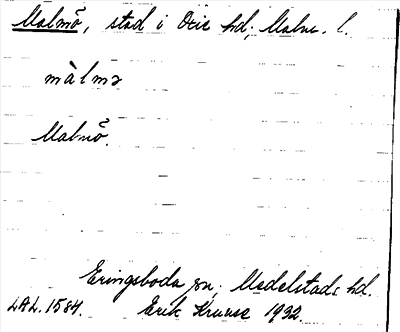 Malmö, stad i Oxie hd, Malm. l.
màlmə
Malmö.
Eringsboda sn, Medelstads hd.
LAL. 1584. Erik Kruuse 1932